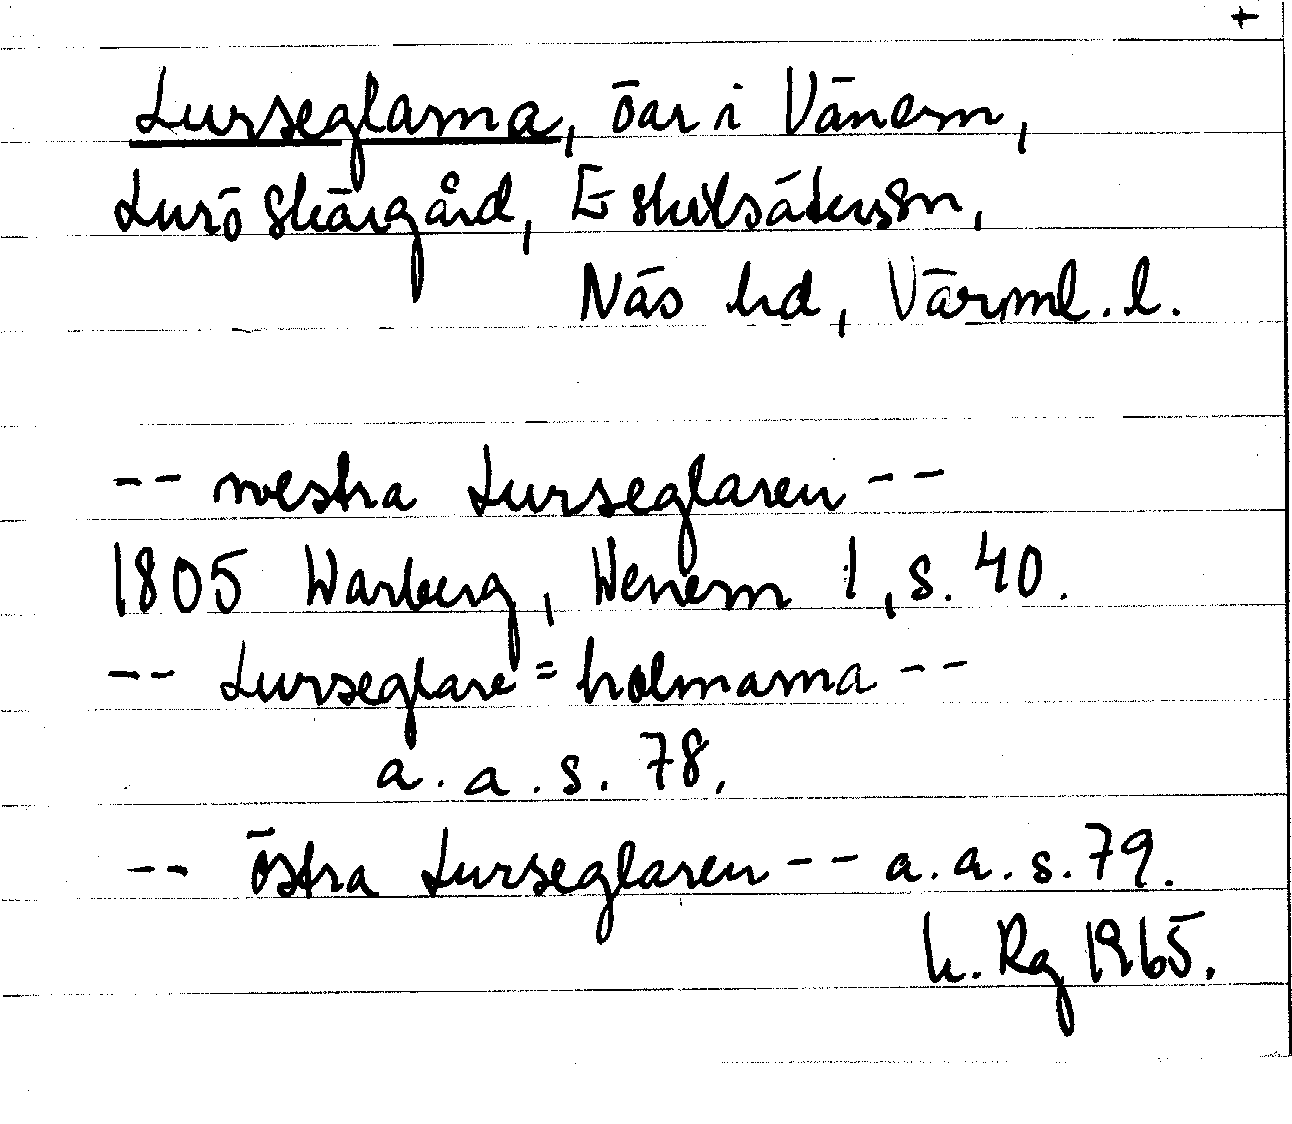 +
Lurseglarna, öar i Vänern,
Lurö skärgård, Eskilsäters sn,
Näs hd, Värml. l.
-- westra Lurseglaren --
1805 Warberg, Wenern 1, s. 40.
-- Lurseglare=holmarna --
a. a. s. 78.
-- östra Lurseglaren -- a. a. s. 79.
Rg 1965.